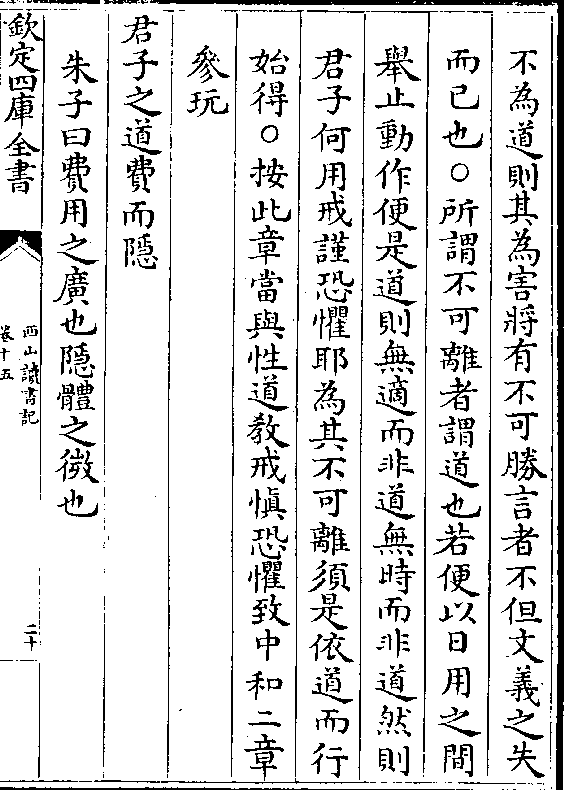 不為道則其為害將有不可勝言者不但文義之失
而已也○所謂不可離者謂道也若便以日用之間
舉止動作便是道則無適而非道無時而非道然則
君子何用戒謹恐懼耶為其不可離須是依道而行
始得○按此章當與性道教戒慎恐懼致中和二章
參玩
君子之道費而隱
朱子曰費用之廣也隱體之微也
欽定四庫全書
西山讀書記
卷十五
二十